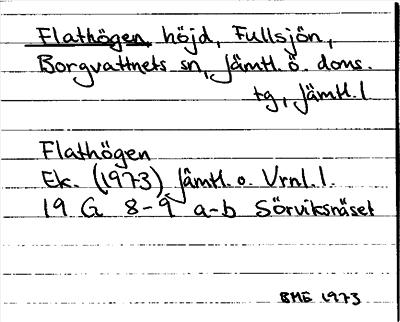 Flathögen höjd, Fullsjön,
Borgvattnets sn, Jämtl. ö. doms.
tg, Jämtl. l
Flathögen
Ek. (1973) Jämtl. o. Vrnl. l.
19 G 8-9 a-b Sörviksnäset
BME 1973